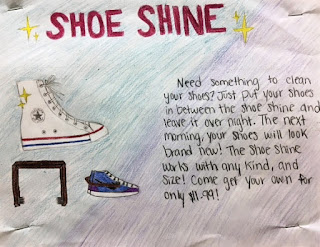 SHOE SHINE
Need something to clean
your shoes? Just put your shoes
in between the shoe shine and
leave it over night. The next
morning, your shoes will look
brand new! The Shoe Shine
works with any kind, and
size! Come get your own for
only $11.99!